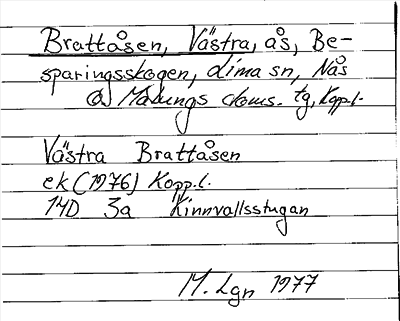 Brattåsen, Västra, ås, Be-
sparingsskogen, Lima sn, Nås
o Malungs doms. tg, Kopp.l.
Västra Brattåsen
ek (1976) Kopp.l.
14D 3a Kinnvallsstugan
M. Lgn 1977